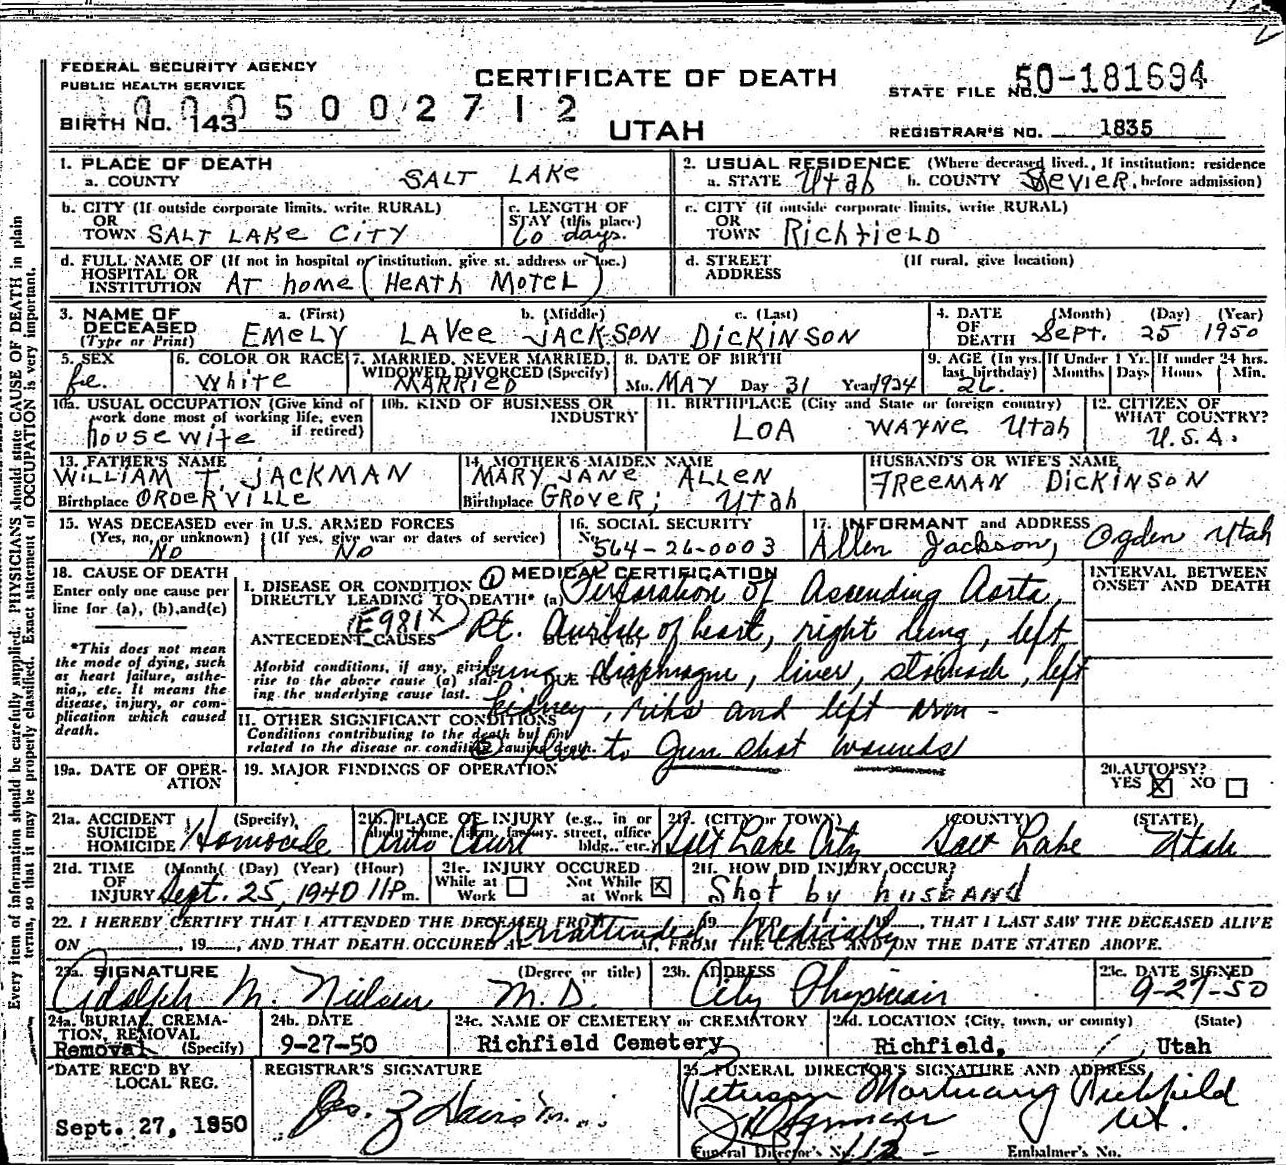 FEDERAL SECURITY AGENCY
PUBLIC HEALTH SERVICE
CERTIFICATE OF DEATH
UTAH
STATE FILE NO. 50-181694
5002712
BIRTH NO. 143
REGISTRAR'S NO. 1835
Every item of information should be carefully supplied. PHYSICIANS should state CAUSE OF DEATH in plain
terms, so that it may be properly classified. Exact statement of OCCUPATION is very important.
1. PLACE OF DEATH
a. COUNTY SALT LAKE
2. USUAL RESIDENCE (Where deceased lived. If institution: residence
a. STATE Utah b. COUNTY Sevier. before admission)
b. CITY (If outside corporate limits, write RURAL)
OR
TOWN SALT LAKE CITY
c. LENGTH OF
STAY (this place)
60 days.
c. CITY (if outside corporate limits, write RURAL)
OR
TOWN RichfiELD
d. FULL NAME OF (If not in hospital or institution, give st. address or loc.)
HOSPITAL OR
INSTITUTION AT home (HEATH MOTEL)
d. STREET (If rural, give location)
ADDRESS
3. NAME OF a. (First) b. (Middle) c. (Last)
DECEASED
(Type or Print) EMELY LAVee JACKSON DICKINSON
4. DATE (Month) (Day) (Year)
OF
DEATH Sept. 25 1950
5. SEX
fe.
6. COLOR OR RACE
White
7. MARRIED, NEVER MARRIED,
WIDOWED, DIVORCED (Specify)
MARRIED
8. DATE OF BIRTH
Mo. MAY Day 31 Year 1924
9. AGE (In yrs. last birthday)
26.
If Under 1 Yr.
Months Days
If under 24 hrs.
Hours Min.
10a. USUAL OCCUPATION (Give kind of
work done most of working life, even
if retired)
housewife
10b. KIND OF BUSINESS OR
INDUSTRY
11. BIRTHPLACE (City and State or foreign country)
LOA WAYNE Utah
12. CITIZEN OF
WHAT COUNTRY?
U.S.A.
13. FATHER'S NAME
WILLIAM T. JACKMAN
Birthplace ORDERVILLE
14. MOTHER'S MAIDEN NAME
MARY JANE ALLEN
Birthplace GROVER, Utah
HUSBAND'S OR WIFE'S NAME
FREEMAN DICKINSON
15. WAS DECEASED ever in U.S. ARMED FORCES
(Yes, no, or unknown) (If yes, give war or dates of service)
No No
16. SOCIAL SECURITY
No. 564-26-0003
17. INFORMANT and ADDRESS
Allen Jackson, Ogden Utah
18. CAUSE OF DEATH
Enter only one cause per
line for (a), (b), and (c)
*This does not mean
the mode of dying, such
as heart failure, asthe-
nia, etc. It means the
disease, injury, or com-
plication which caused
death.
MEDICAL CERTIFICATION
I. DISEASE OR CONDITION
DIRECTLY LEADING TO DEATH* (a) (1) Perforation of Ascending Aorta,
(E981X)
ANTECEDENT CAUSES Rt. Auricle of heart, right lung, left
Morbid conditions, if any, giving
rise to the above cause (a) stat-
ing the underlying cause last.
lung, diaphragm, liver, stomach, left
kidney, ribs and left arm -
II. OTHER SIGNIFICANT CONDITIONS
Conditions contributing to the death but not
related to the disease or condition causing death.
(2) Due to Gun shot wounds
INTERVAL BETWEEN
ONSET AND DEATH
19a. DATE OF OPER-
ATION
19. MAJOR FINDINGS OF OPERATION
20. AUTOPSY?
YES ☒ NO ☐
21a. ACCIDENT (Specify)
SUICIDE
HOMICIDE Homocide
21b. PLACE OF INJURY (e.g., in or
about home, farm, factory, street, office
bldg., etc.)
Auto Court
21c. (CITY or TOWN) (COUNTY) (STATE)
Salt Lake City Salt Lake Utah
21d. TIME (Month) (Day) (Year) (Hour)
OF
INJURY Sept. 25, 1940 11P m.
21e. INJURY OCCURED
While at Work ☐ Not While at Work ☒
21f. HOW DID INJURY OCCUR?
Shot by husband
22. I HEREBY CERTIFY THAT I ATTENDED THE DECEASED FROM , 19 , THAT I LAST SAW THE DECEASED ALIVE
Unattended Medically
ON , 19 , AND THAT DEATH OCCURED AT M. FROM THE CAUSES AND ON THE DATE STATED ABOVE.
23a. SIGNATURE (Degree or title)
Adolph M. Nielsen M.D.
23b. ADDRESS
City Physician
23c. DATE SIGNED
9-27-50
24a. BURIAL, CREMA-
TION, REMOVAL
Removal (Specify)
24b. DATE
9-27-50
24c. NAME OF CEMETERY or CREMATORY
Richfield Cemetery
24d. LOCATION (City, town, or county) (State)
Richfield, Utah
DATE REC'D BY
LOCAL REG.
Sept. 27, 1950
REGISTRAR'S SIGNATURE
25. FUNERAL DIRECTOR'S SIGNATURE AND ADDRESS
Peterson Mortuary Richfield
Ut.
Funeral Director's No. 112
Embalmer's No.